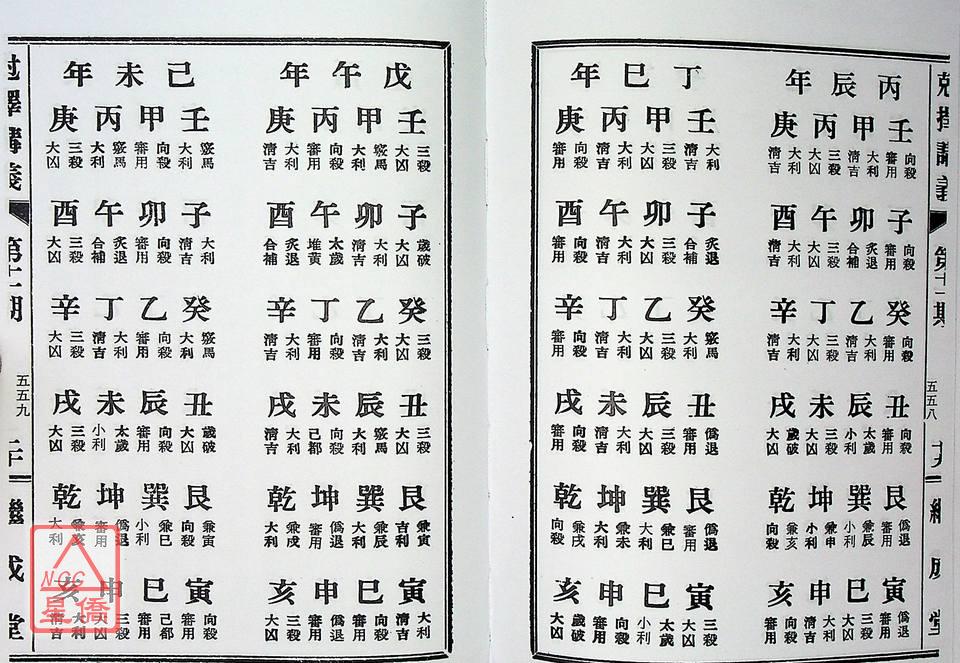 剋擇講義 第十一期 五五八 繼成堂
丙辰年
壬 向殺審用 甲 大利清吉 丙 三殺大凶 庚 大利清吉
子 向殺審用 卯 炙退合補 午 三殺大凶 酉 大利清吉
癸 向殺審用 乙 大利清吉 丁 三殺大凶 辛 大利清吉
丑 向殺審用 辰 太歲小利 未 三殺大凶 戌 歲破大凶
艮 僞退審用 巽 兼辰小利 坤 兼申小利 乾 兼亥向殺
寅 僞退審用 巳 三殺大凶 申 大利清吉 亥 向殺審用
丁巳年
壬 大利清吉 甲 三殺大凶 丙 大利清吉 庚 向殺審用
子 炙退合補 卯 三殺大凶 午 大利清吉 酉 向殺審用
癸 竅馬大利 乙 三殺大凶 丁 大利清吉 辛 向殺審用
丑 僞退審用 辰 三殺大凶 未 大利清吉 戌 向殺審用
艮 僞退審用 巽 兼巳大利 坤 兼未大利 乾 兼戌向殺
寅 三殺大凶 巳 太歲小利 申 向殺審用 亥 歲破大凶
戊午年
壬 三殺大凶 甲 竅馬大利 丙 向殺審用 庚 大利清吉
子 歲破大凶 卯 大利清吉 午 太歲堆黄 酉 炙退合補
癸 三殺大凶 乙 大利清吉 丁 向殺審用 辛 大利清吉
丑 三殺大凶 辰 竅馬大利 未 向殺己都 戌 大利清吉
艮 兼寅吉利 巽 兼辰大利 坤 僞退審用 乾 兼戌大利
寅 大利清吉 巳 向殺審用 申 僞退審用 亥 三殺大凶
己未年
壬 竅馬大利 甲 向殺審用 丙 竅馬大利 庚 三殺大凶
子 大利清吉 卯 向殺審用 午 炙退合補 酉 三殺大凶
癸 竅馬大利 乙 向殺審用 丁 大利清吉 辛 三殺大凶
丑 歲破大凶 辰 向殺審用 未 太歲小利 戌 三殺大凶
艮 兼寅向殺 巽 兼巳小利 坤 僞退審用 乾 兼亥大利
寅 向殺審用 巳 己都審用 申 三殺大凶 亥 大利清吉
擇講義 第十一期 五五九 繼成堂
NCC
星僑